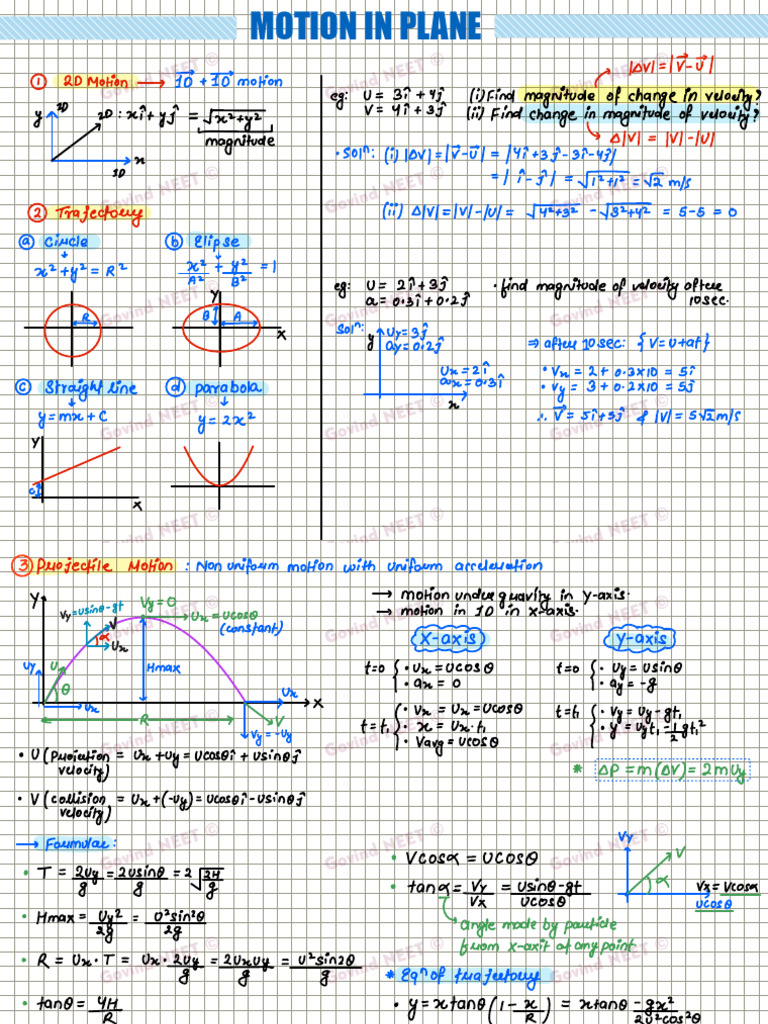 MOTION IN PLANE
① 2D Motion → 1D + 1D motion
y 2D 2D : xî + yĵ = √x²+y²
magnitude
x
1D
② Trajectory
ⓐ Circle
x² + y² = R²
R
ⓑ Elipse
x²/A² + y²/B² = 1
Y
B A
X
ⓒ Straight line
y = mx + c
Y
c
X
ⓓ parabola
y = 2x²
|ΔV| = |V⃗-U⃗|
eg: U = 3î + 4ĵ (i) Find magnitude of change in velocity?
V = 4î + 3ĵ (ii) Find change in magnitude of velocity?
Δ|V| = |V| - |U|
• Solⁿ: (i) |ΔV| = |V⃗-U⃗| = |4î+3ĵ-3î-4ĵ|
= |î-ĵ| = √1²+1² = √2 m/s
(ii) Δ|V| = |V| - |U| = √4²+3² - √3²+4² = 5-5 = 0
eg: U = 2î + 3ĵ • find magnitude of velocity after
a = 0.3î + 0.2ĵ 10sec.
Solⁿ:
y
Uy = 3ĵ
ay = 0.2ĵ
Ux = 2î
ax = 0.3î
x
⇒ after 10 sec: {V = U + at}
• Vx = 2 + 0.3×10 = 5î
• Vy = 3 + 0.2×10 = 5ĵ
∴ V⃗ = 5î + 5ĵ & |V| = 5√2 m/s
③ Projectile Motion : Non uniform motion with uniform acceleration
Y
Vy = usinθ-gt
V
α
Ux
Vy = 0
Ux = Ucosθ
(constant)
Uy
U
θ
Ux
Hmax
R
Ux
X
V
Vy = -Uy
→ motion under gravity in y-axis.
→ motion in 1D in x-axis.
X-axis
t=0 { • Ux = Ucosθ
• ax = 0
t=t₁ { • Vx = Ux = Ucosθ
• x = Ux.t₁
• Vavg = Ucosθ
Y-axis
t=0 { • Uy = Usinθ
• ay = -g
t=t₁ { • Vy = Uy - gt₁
• y = Uyt₁ - 1/2 gt₁²
* ΔP = m(ΔV) = 2mUy
• U (Projection velocity) = Ux + Uy = Ucosθî + Usinθĵ
• V (collision velocity) = Ux + (-Uy) = Ucosθî - Usinθĵ
→ Formulae:
• T = 2Uy/g = 2Usinθ/g = 2√2H/g
• Hmax = Uy²/2g = U²sin²θ/2g
• R = Ux • T = Ux • 2Uy/g = 2UxUy/g = U²sin2θ/g
• tanθ = 4H/R
• Vcosα = Ucosθ
• tanα = Vy/Vx = Usinθ-gt/Ucosθ
angle made by particle
from x-axit at any point
Vy
V
α
Vx = Vcosα
Ucosθ
* Eqⁿ of trajectory
• y = x tanθ (1 - x/R) = x tanθ - gx²/2U²cos²θ
Govind NEET ©
Govind NEET ©
Govind NEET ©
Govind NEET ©
Govind NEET ©
Govind NEET ©
Govind NEET ©
Govind NEET ©